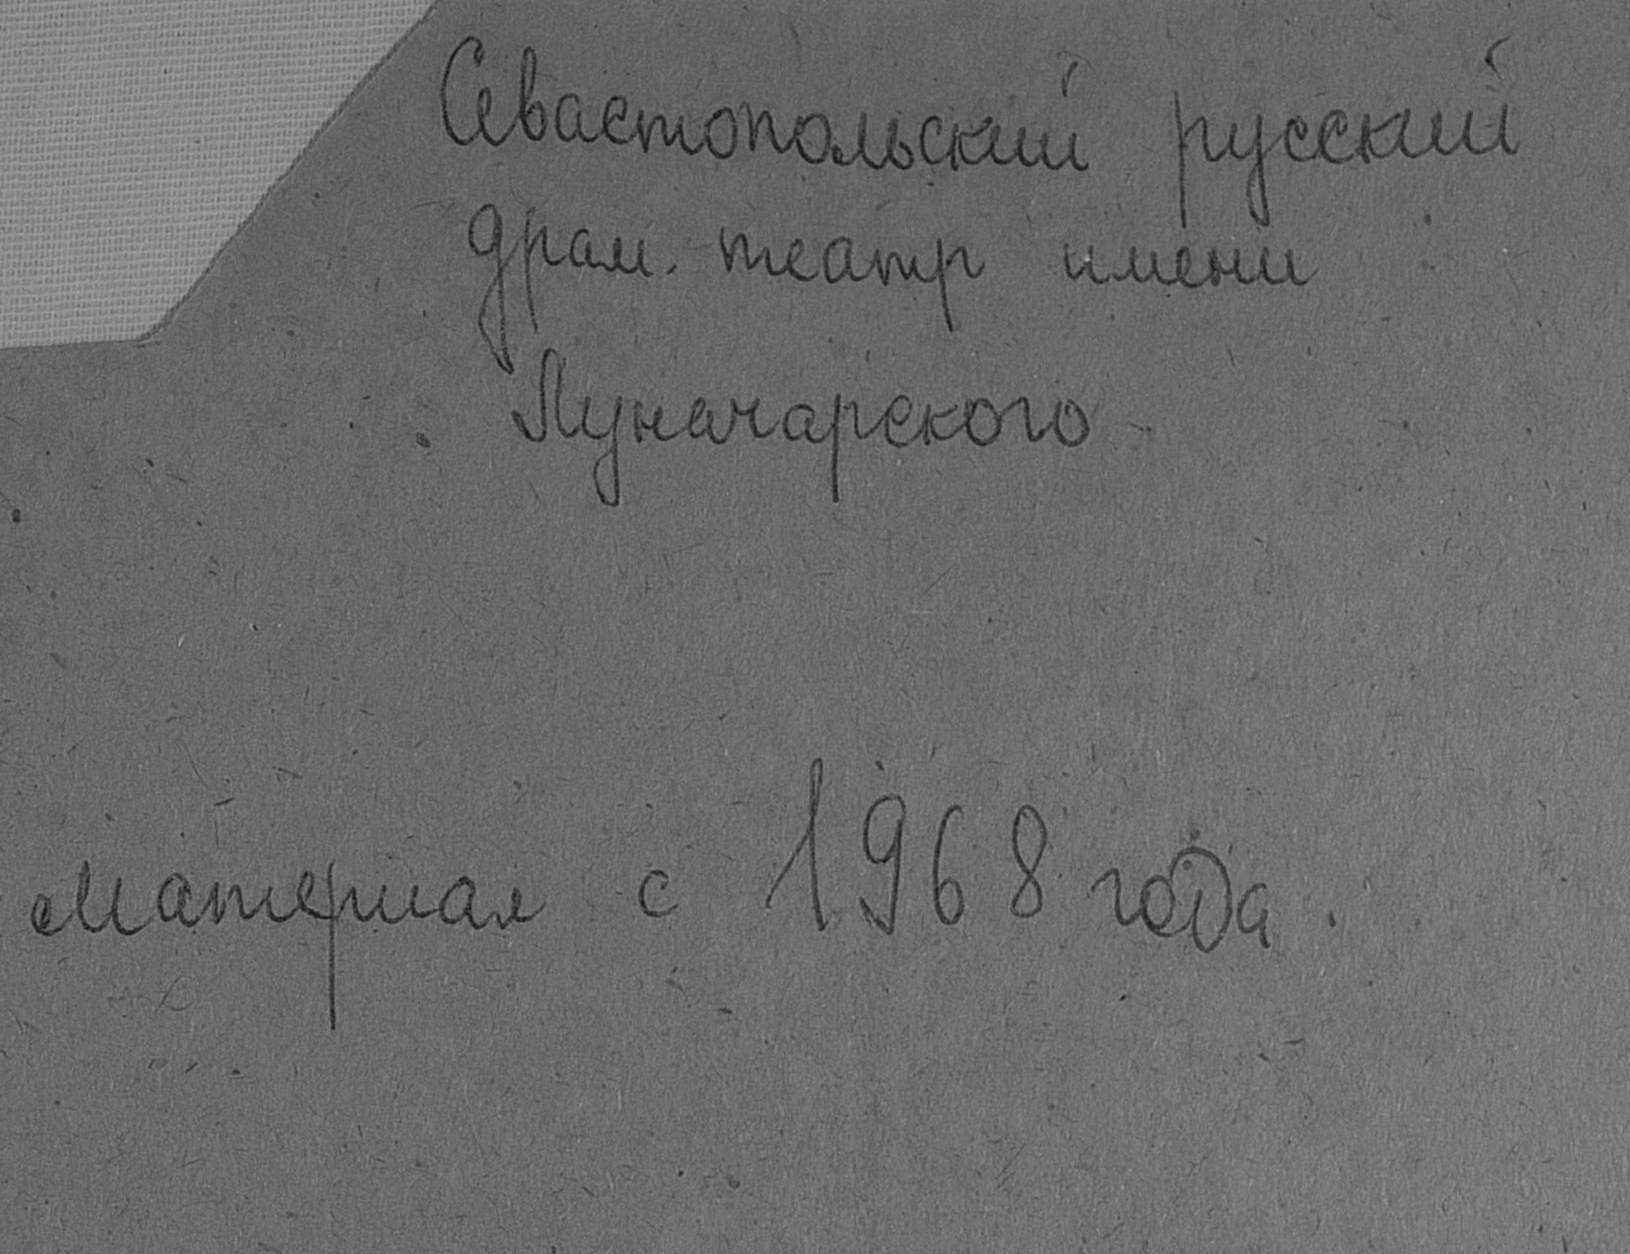 Севастопольский русский
драм. театр имени
Луначарского
Материал с 1968 года.